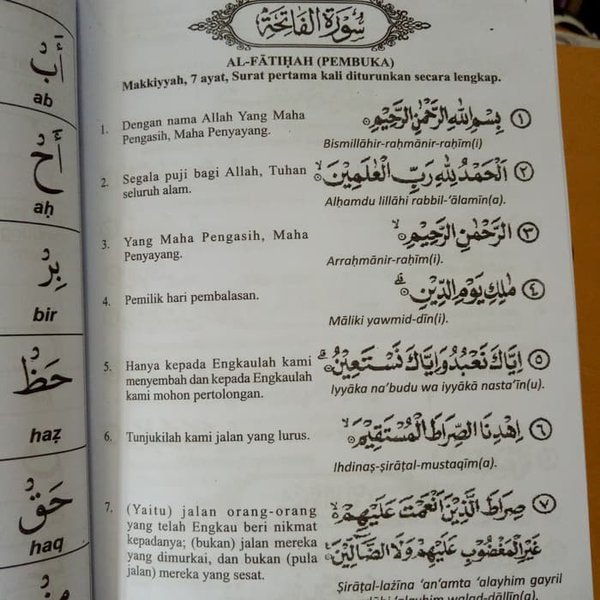 أَبْ
ab
أَحْ
aḥ
بِرْ
bir
حَظْ
haẓ
حَقْ
haq
سُوْرَةُ الْفَاتِحَةِ
AL-FĀTIḤAH (PEMBUKA)
Makkiyyah, 7 ayat, Surat pertama kali diturunkan secara lengkap.
1. Dengan nama Allah Yang Maha
Pengasih, Maha Penyayang.
بِسْمِ اللّٰهِ الرَّحْمٰنِ الرَّحِيْمِ ١
Bismillāhir-raḥmānir-raḥīm(i)
2. Segala puji bagi Allah, Tuhan
seluruh alam.
اَلْحَمْدُ لِلّٰهِ رَبِّ الْعٰلَمِيْنَۙ ٢
Alḥamdu lillāhi rabbil-'ālamīn(a).
3. Yang Maha Pengasih, Maha
Penyayang.
الرَّحْمٰنِ الرَّحِيْمِۙ ٣
Arraḥmānir-raḥīm(i).
4. Pemilik hari pembalasan.
مٰلِكِ يَوْمِ الدِّيْنِۗ ٤
Māliki yawmid-dīn(i).
5. Hanya kepada Engkaulah kami
menyembah dan kepada Engkaulah
kami mohon pertolongan.
اِيَّاكَ نَعْبُدُ وَاِيَّاكَ نَسْتَعِيْنُۗ ٥
Iyyāka na'budu wa iyyākā nasta'īn(u).
6. Tunjukilah kami jalan yang lurus.
اِهْدِنَا الصِّرَاطَ الْمُسْتَقِيْمَۙ ٦
Ihdinaṣ-ṣirāṭal-mustaqīm(a).
7. (Yaitu) jalan orang-orang
yang telah Engkau beri nikmat
kepadanya; (bukan) jalan mereka
yang dimurkai, dan bukan (pula
jalan) mereka yang sesat.
صِرَاطَ الَّذِيْنَ اَنْعَمْتَ عَلَيْهِمْۙ ٧
غَيْرِ الْمَغْضُوْبِ عَلَيْهِمْ وَلَا الضَّاۤلِّيْنَ
Ṣirāṭal-lażīna 'an'amta 'alayhim gayril
'alayhim walad-dāllīn(a).